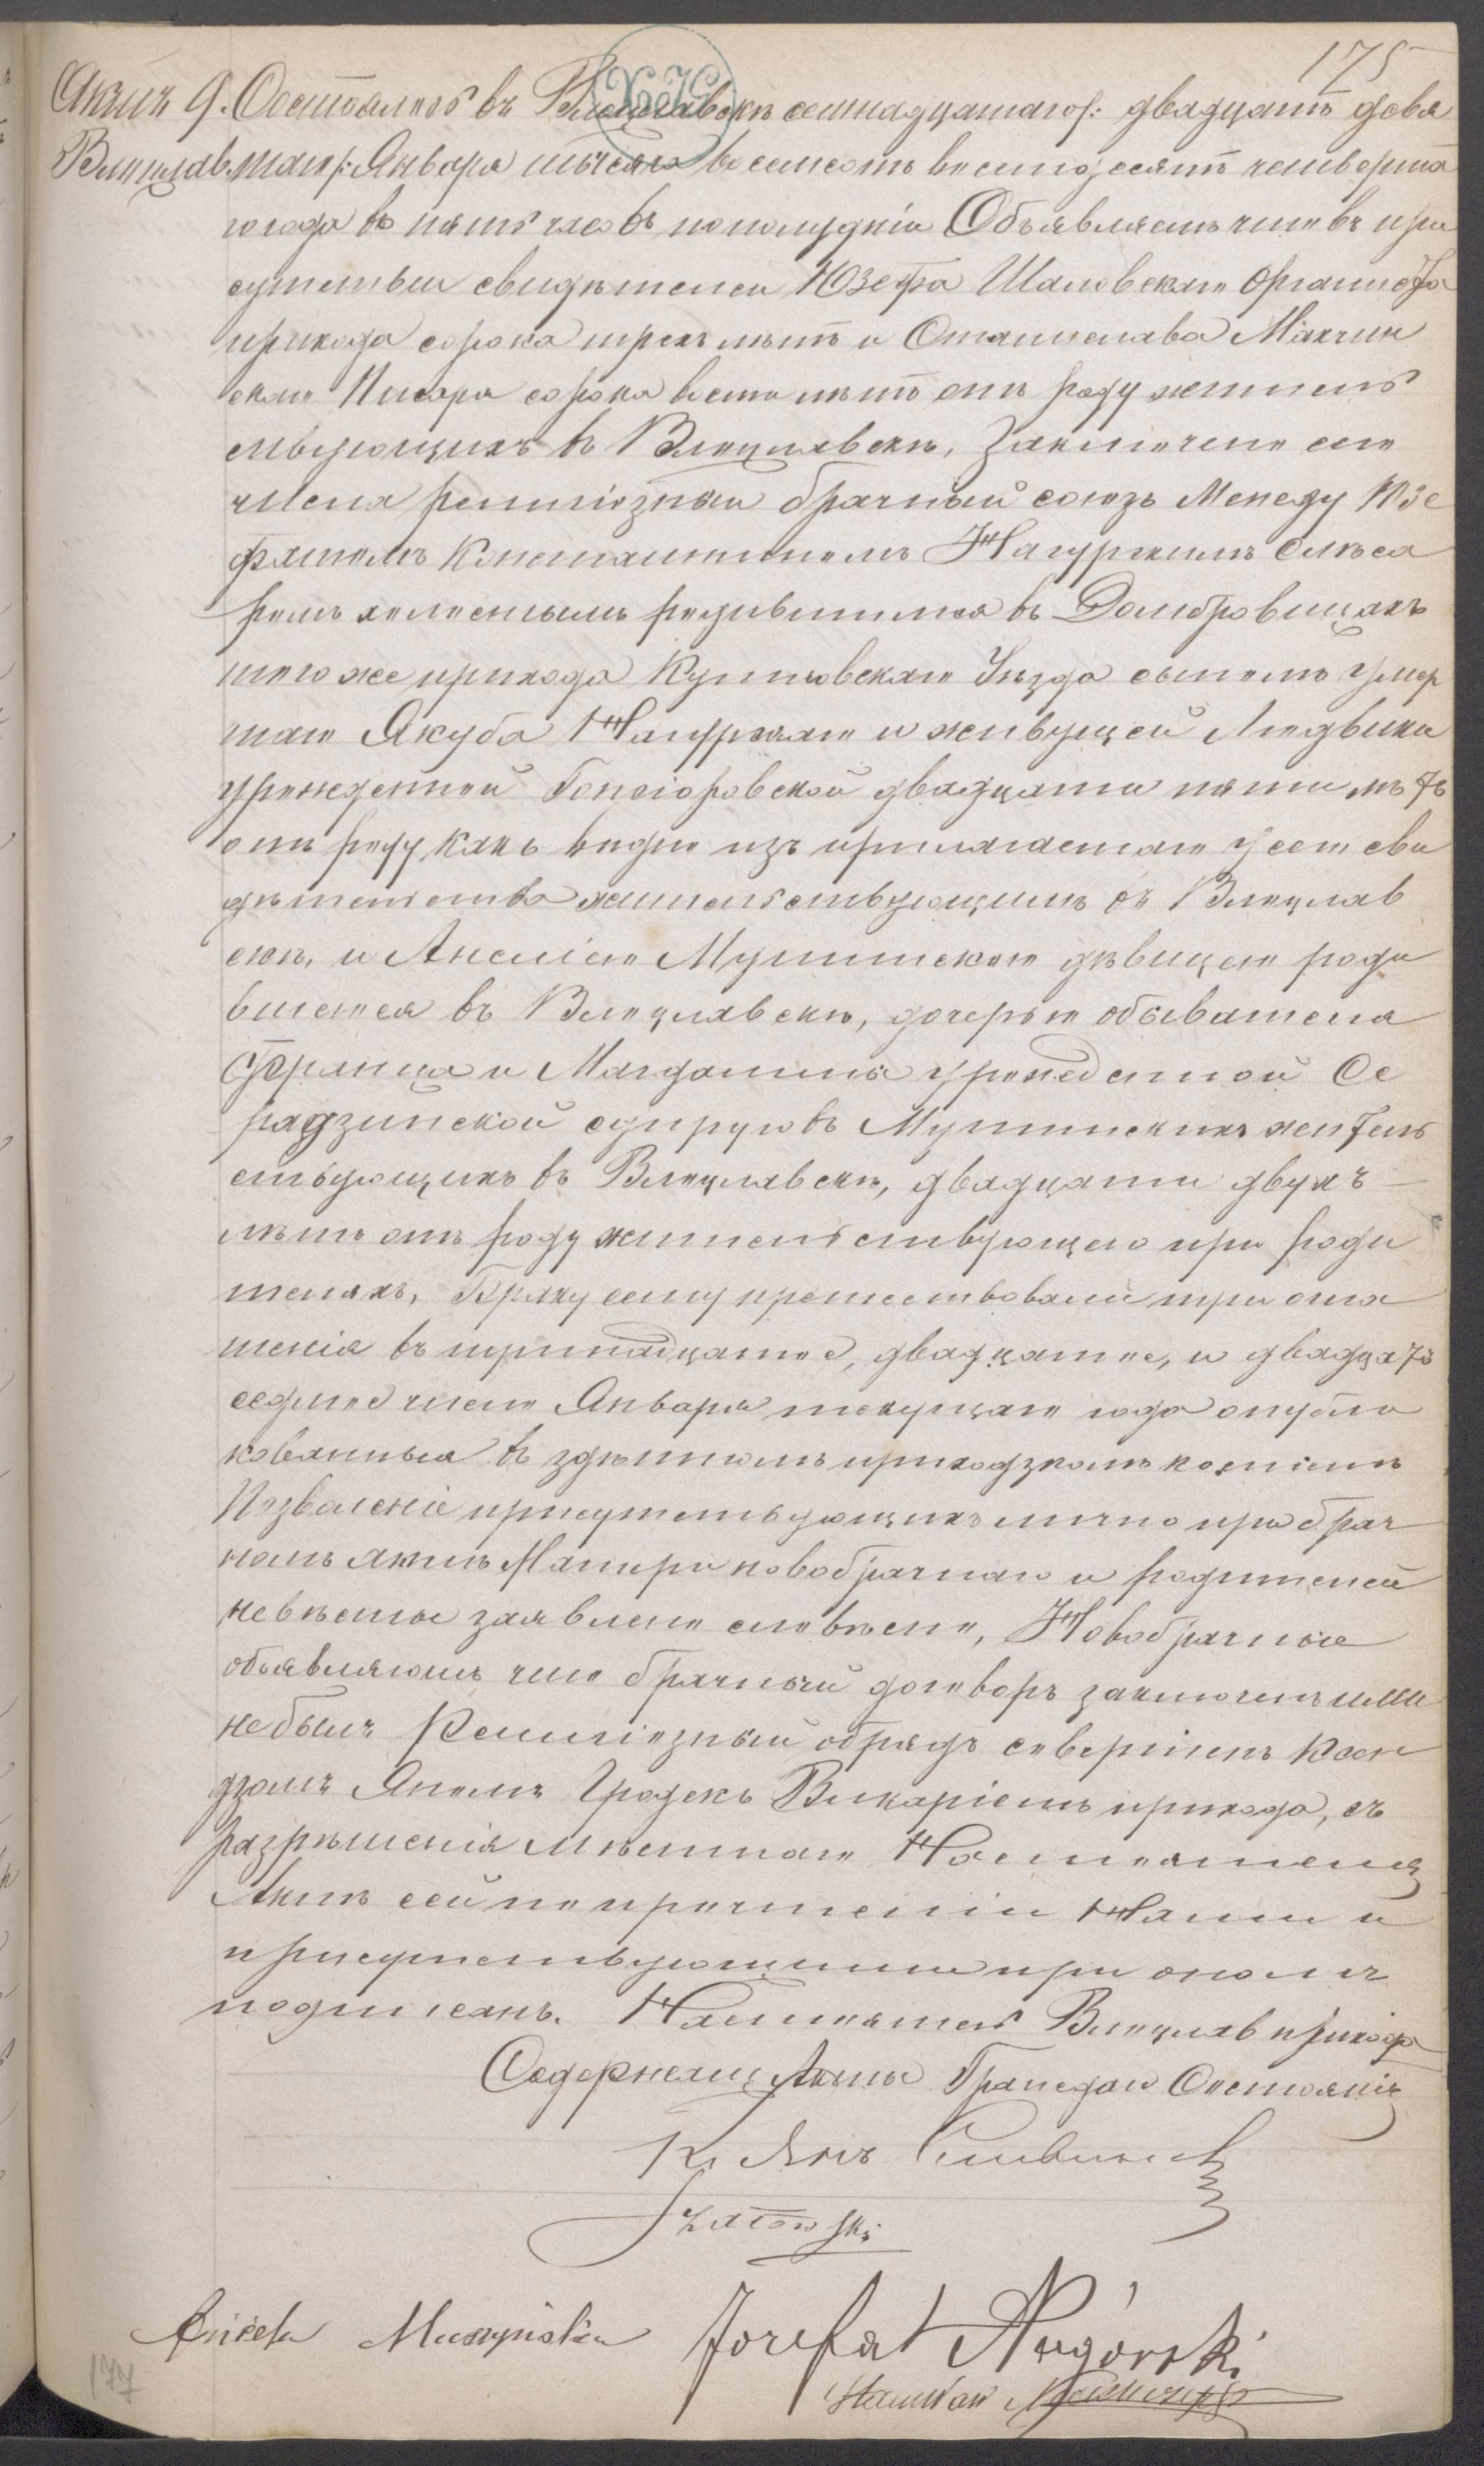 175
Актъ 9. Состоялось въ Влоцлавскѣ семнадцатаго /: двадцать девя
Влоцлав. таго /: Января тысяча восемсотъ восмдесятъ четверта
го года въ пять часовъ пополудніи Объявляемъ что въ при
сутствіи свидѣтелей Юзефа Шаловскаго Органиста
прихода сорока трехъ лѣтъ и Станислава Макчин
скаго Писаря сорока восми лѣтъ отъ роду житель
ствующихъ въ Влоцлавскѣ, Заключено сего
числа религіозный брачный союзъ Между Юзе
фатомъ Константиномъ Нагурскимъ слѣса
ремъ холостымъ родившимся въ Домбровицахъ
тогоже прихода Кутновскаго Уѣзда сыномъ умер
шаго Якуба Нагурскаго и живущей Людвики
урожденной Гонсіоровской двадцати пяти лѣтъ
отъ роду какъ видно изъ прилагаемаго у сего сви
дѣтельства жительствующимъ въ Влоцлав
скѣ, и Анелією Мушинскою дѣвицею роди
вшеюся въ Влоцлавскѣ, дочерью обывателя
Франца и Магдалины урожденной Се
радзинской супруговъ Мушинскихъ житель
ствующихъ въ Влоцлавскѣ, двадцати двухъ
лѣтъ отъ роду жительствующею при роди
теляхъ, Браку сему предшествовали три огла
шенія въ тринадцатое, двадцатое, и двадцать
седмое число Января текущаго года опубли
кованныя въ здѣшномъ приходзкомъ костелѣ
Позволеніе присутствующихъ лично при брач
номъ актѣ Матери новобрачнаго и родителей
невѣсты заявлено словѣсно, Новобрачные
объявляютъ что брачный договоръ заключенъ ими
не былъ Религіозный обрядъ совершенъ Ксен
дзомъ Яномъ Градекъ Викаріемъ прихода, съ
разрѣшенія мѣстнаго Настоятеля
Актъ сей по прочтеніи Нами и
присутствующими при ономъ
подписанъ. Настоятель Влоцлав прихода
Содержащ Акты Граждан Состоянія
К. Янъ
Szałowski
Aniela Muszyńska Jozefat Nagórski
Stanisław
177